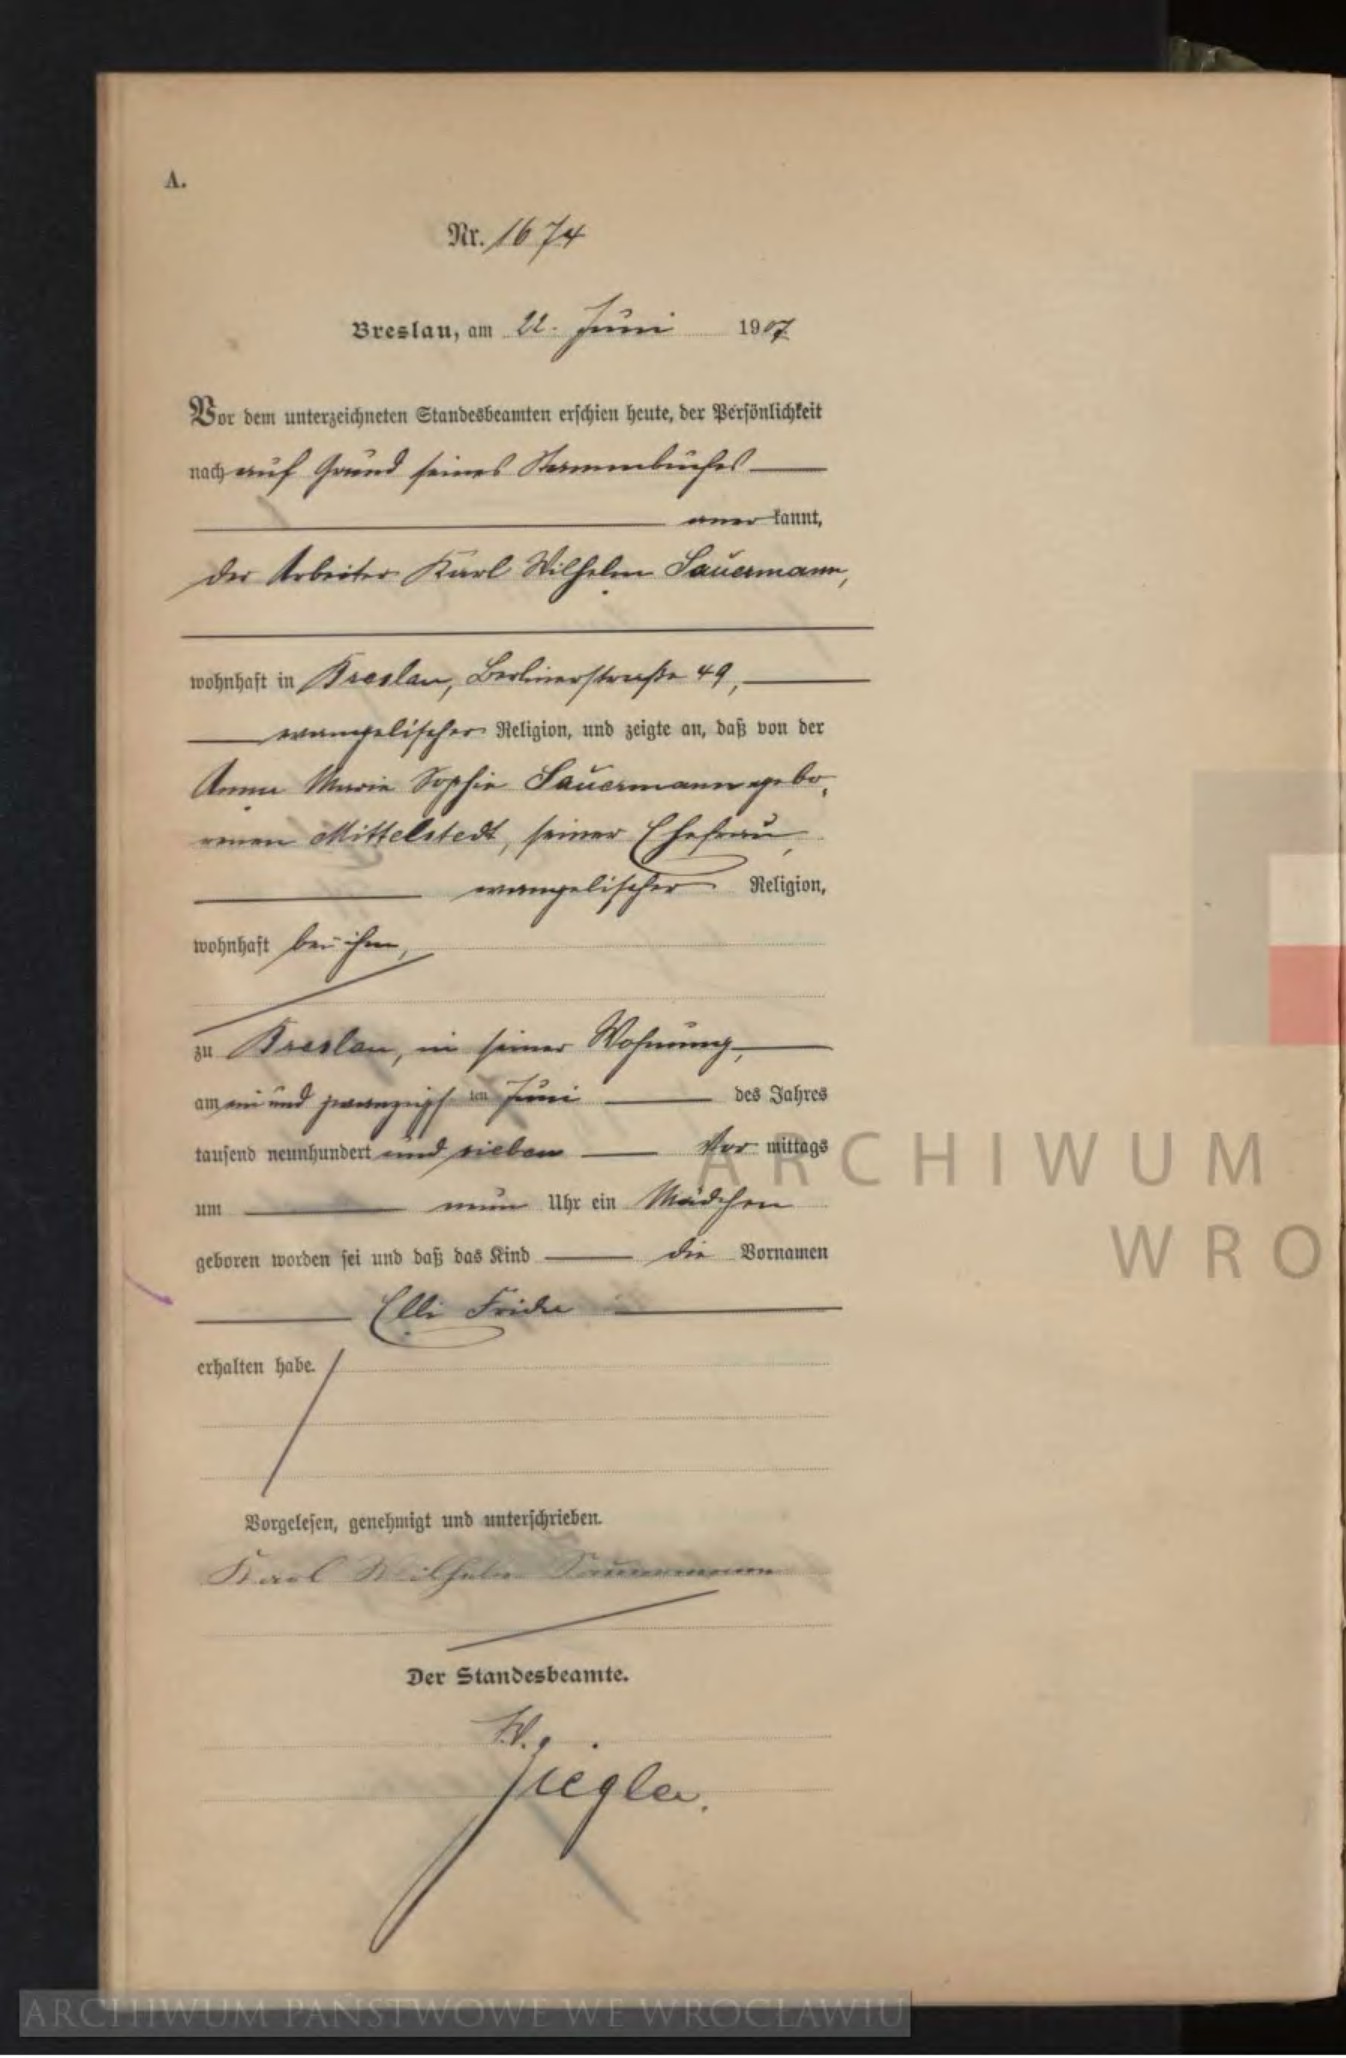 A.
Nr. 1674
Breslau, am 22. Juni 1907
Vor dem unterzeichneten Standesbeamten erschien heute, der Persönlichkeit
nach auf Grund seines Stammbuches
anerkannt,
der Arbeiter Karl Wilhelm Sauermann,
wohnhaft in Breslau, Berlinerstraße 49,
evangelischer Religion, und zeigte an, daß von der
Anna Marie Sophie Sauermann gebo-
renen Mittelstedt, seiner Ehefrau,
evangelischer Religion,
wohnhaft bei ihm,
zu Breslau, in seiner Wohnung,
am ein und zwanzigsten Juni des Jahres
tausend neunhundert und sieben Vormittags
um neun Uhr ein Mädchen
geboren worden sei und daß das Kind die Vornamen
Elli Frida
erhalten habe.
Vorgelesen, genehmigt und unterschrieben.
Karl Wilhelm Sauermann
Der Standesbeamte.
Ziegler.
ARCHIWUM
WRO
ARCHIWUM PAŃSTWOWE WE WROCŁAWIU